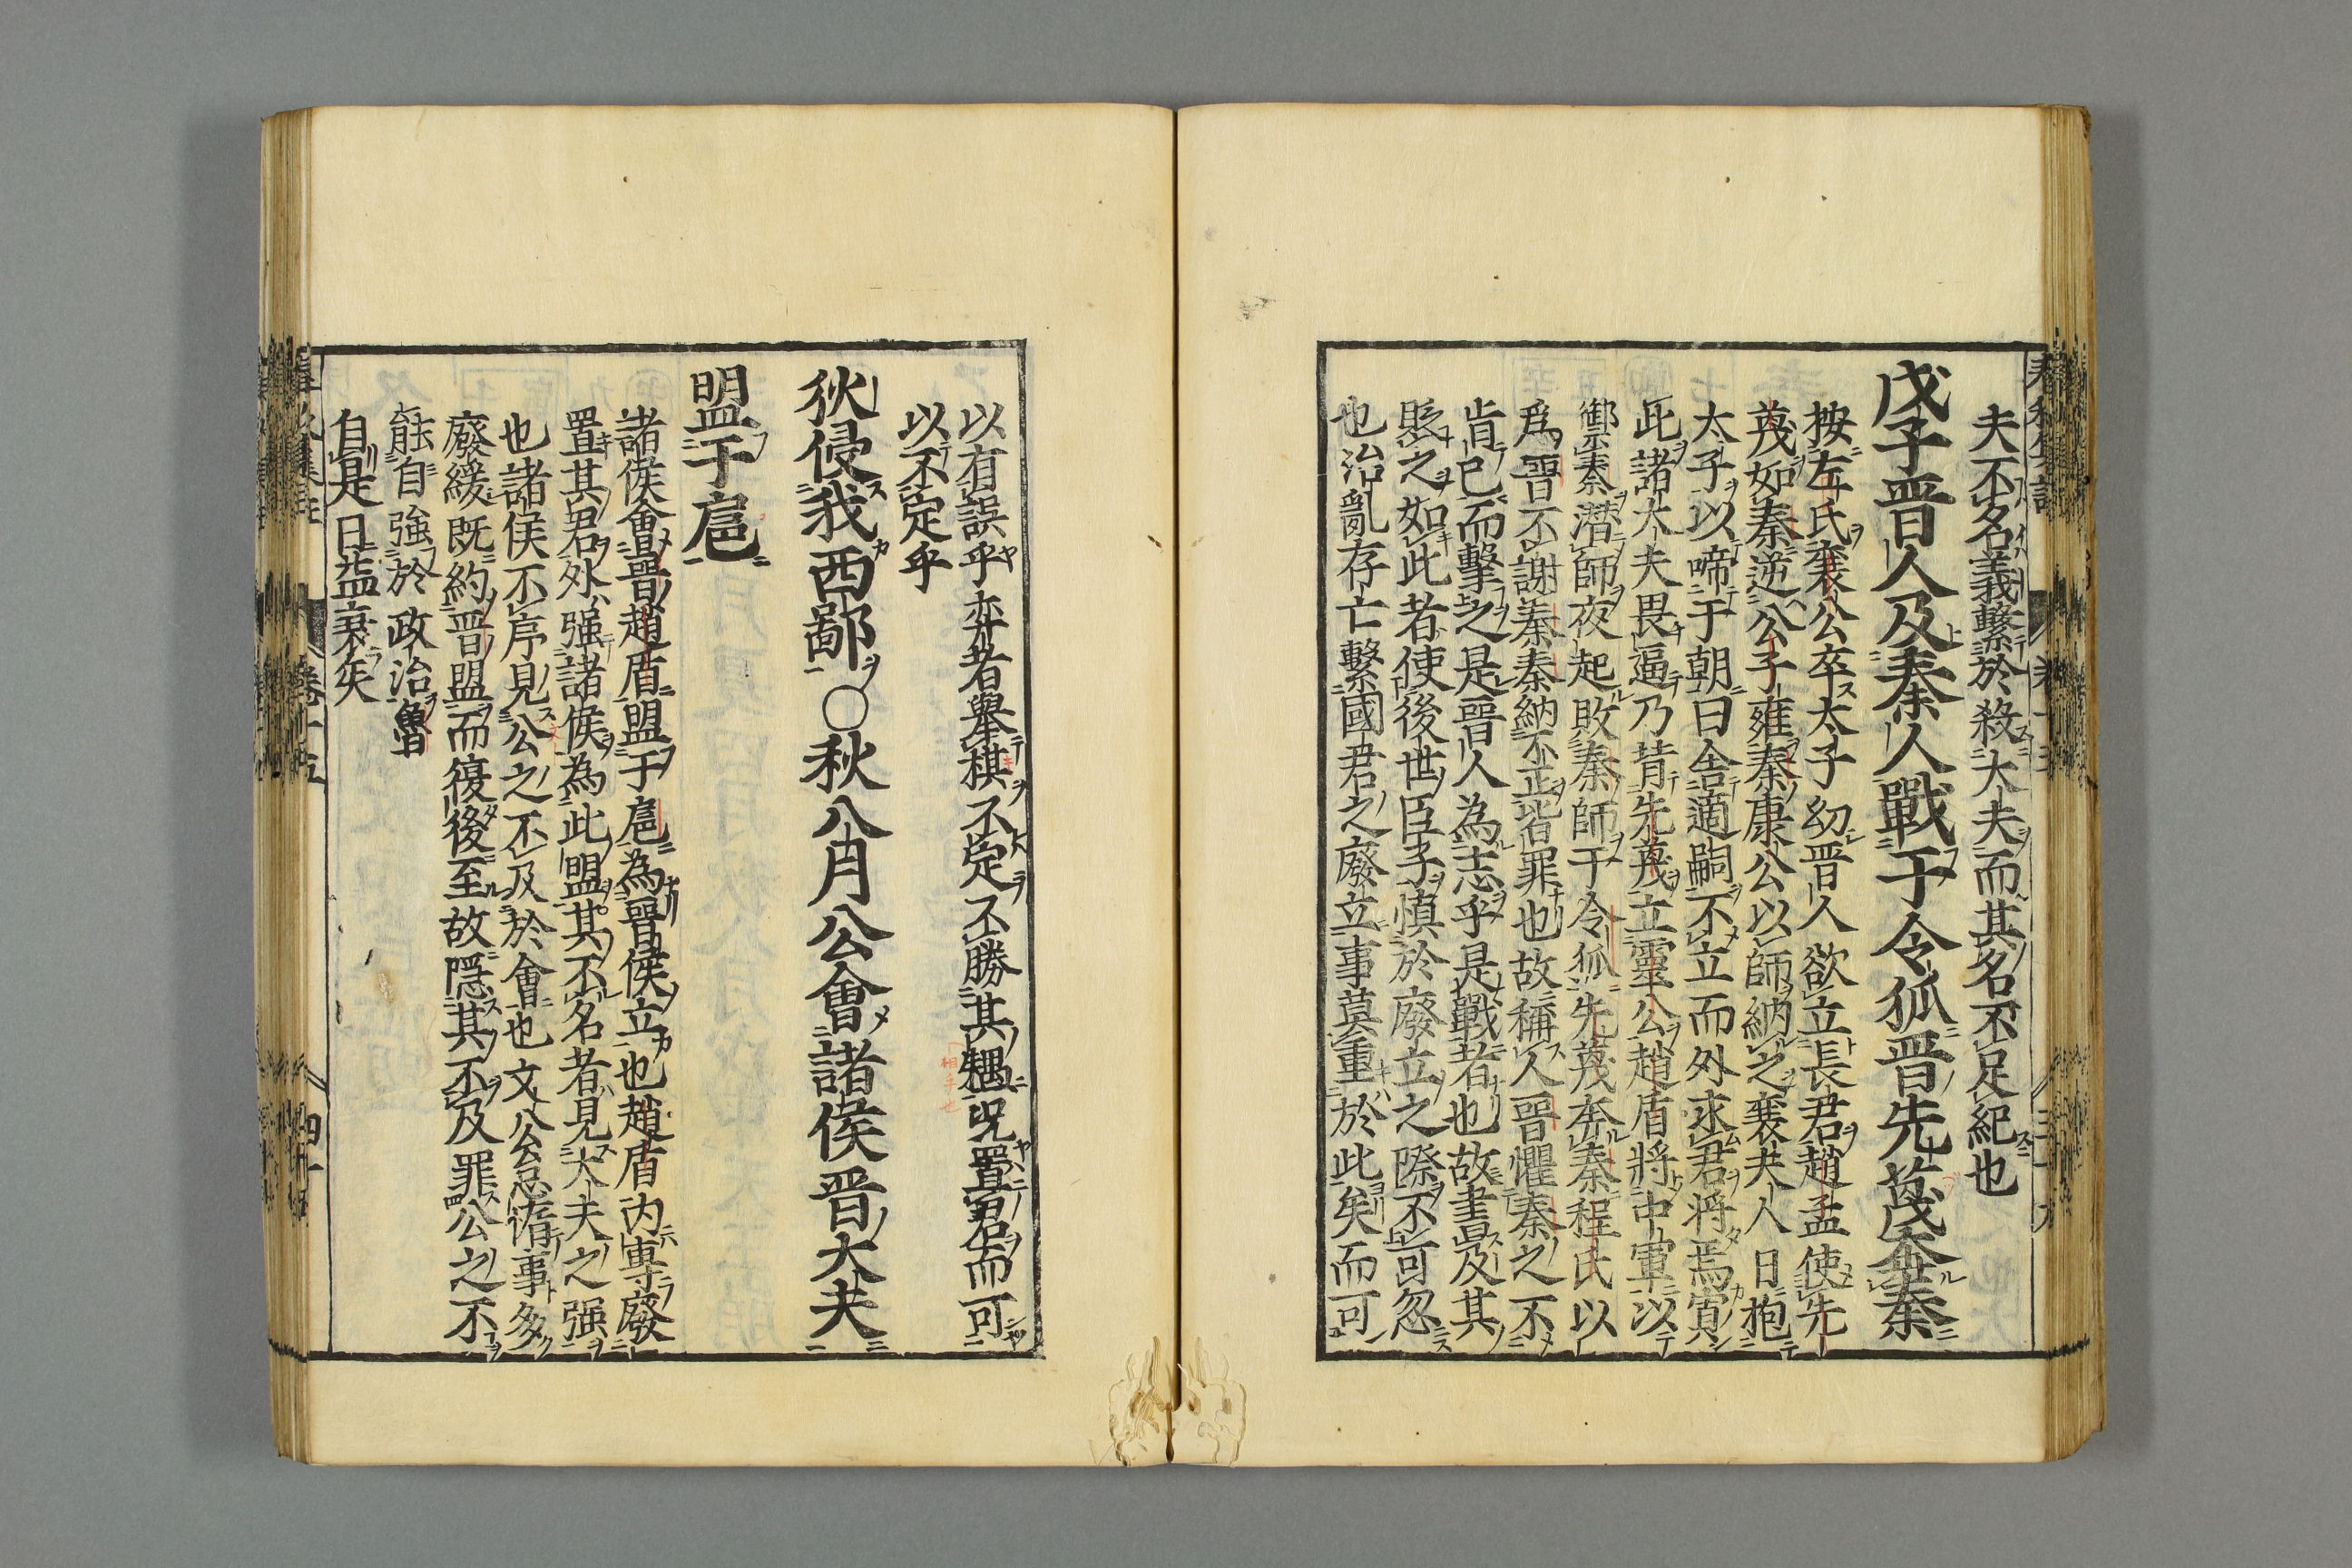 夫不名義繫於殺大夫而其名不足紀也
戊子晋人及秦人戰于令狐晋先蔑奔秦
按左氏襄公卒太子幼晋人欲立長君趙孟使先
蔑如秦逆公子雍秦康公以師納之襄夫人日抱
太子以啼于朝曰舍適嗣不立而外求君將焉寘
此諸大夫畏逼乃背先蔑立靈公趙盾將中軍以
禦秦潜師夜起敗秦師于令狐先蔑奔秦程氏以
爲晋不謝秦秦納不正皆罪也故稱人晋懼秦之不
肯已而擊之是晋人為志乎是戰者也故書及其
貶之如此者使後世臣子慎於廢立之際不可忽
也治亂存亡繫國君之廢立事莫重於此矣而可
以有誤乎弈者舉棋不定不勝其耦况置君而可
以不定乎
狄侵我西鄙〇秋八月公會諸侯晋大夫
盟于扈
諸侯會晋趙盾盟于扈為晋侯立也趙盾内專廢
置其君外强諸侯為此盟其不名者見大夫之强
也諸侯不序見公之不及於會也文公怠惰事多
廢緩既約晋盟而復後至故隱其不及罪公之不
能自強於政治魯
自是日益衰矣